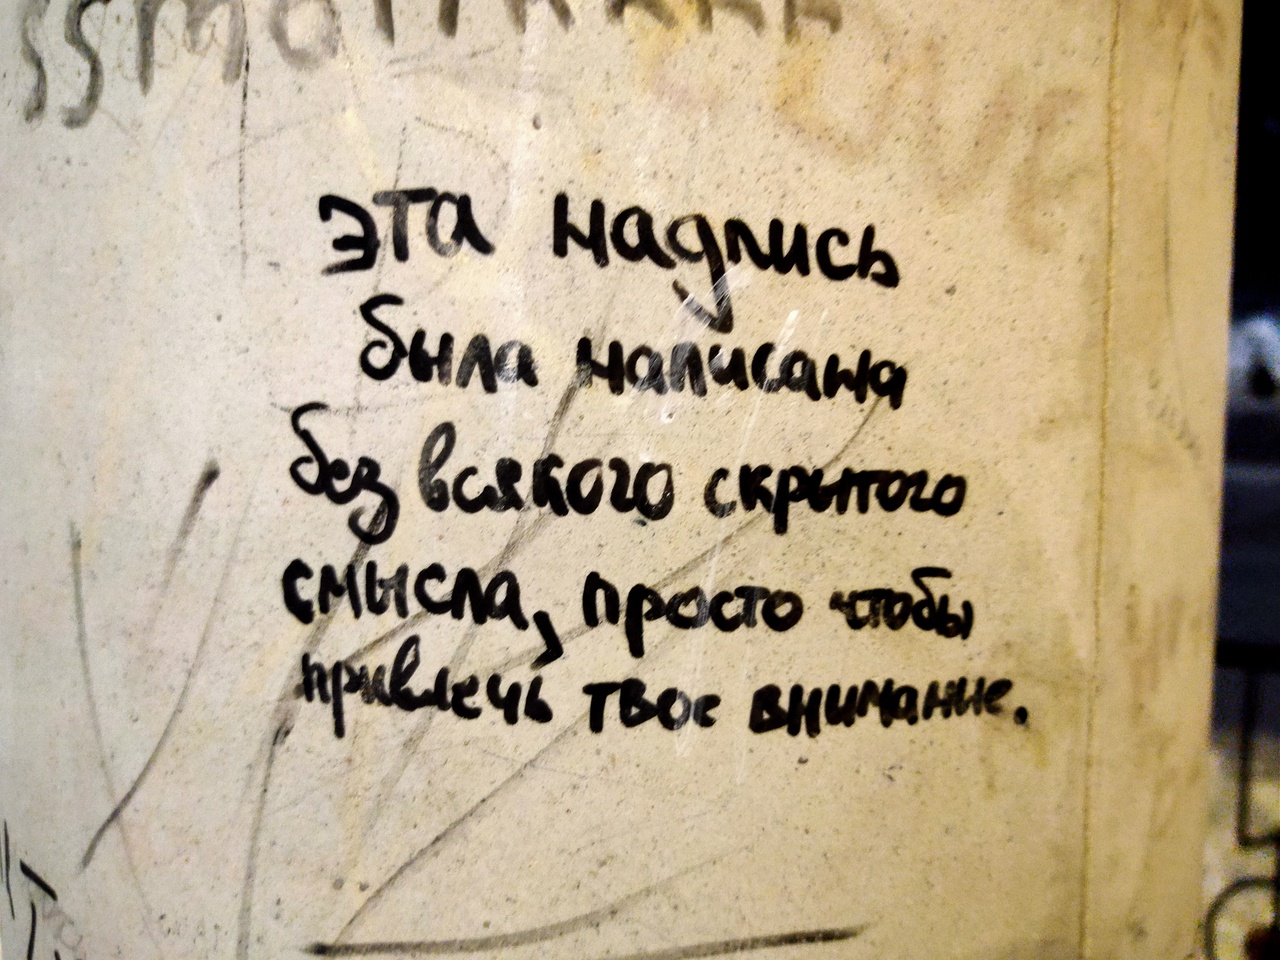 эта надпись
была написана
без всякого скрытого
смысла, просто чтобы
привлечь твое внимание.